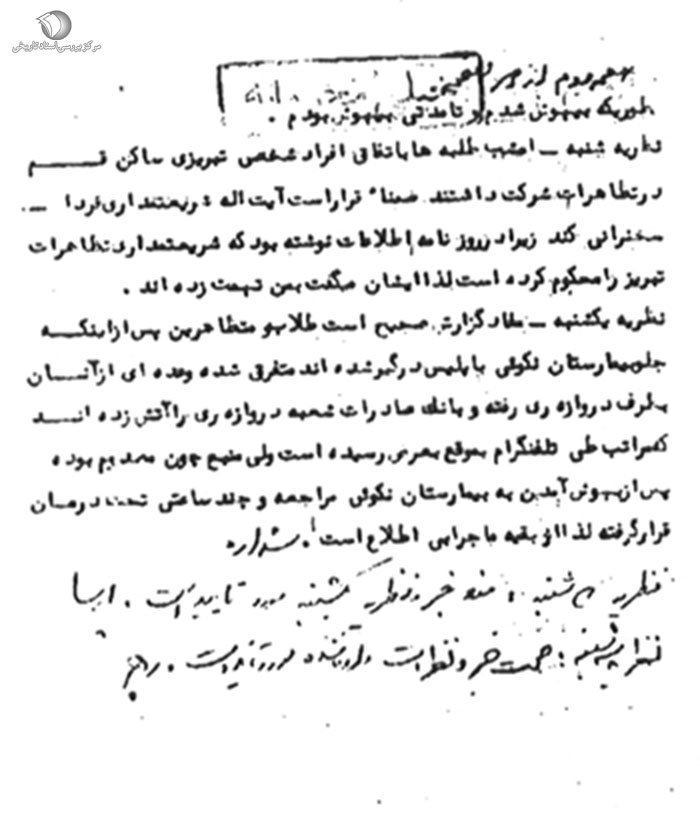 مرکز بررسی اسناد تاریخی
صفحه دوم از
طوریکه بیهوش شدم و تا مدتی بیهوش بودم .
نظریه شنبه ـ امشب طلبه ها باتفاق افراد شخص تبریزی ساکن قم
در تظاهرات شرکت داشتند ضمناً قرار است آیت اله شریعتمداری فردا ـ
سخنرانی کند زیرا در روزنامه اطلاعات نوشته بود که شریعتمداری تظاهرات
تبریز را محکوم کرده است لذا ایشان میگفت بمن تهمت زده اند .
نظریه یکشنبه ـ مفاد گزارش صحیح است طلاب و متظاهرین پس از اینکه
جلو بیمارستان نکوئی با پلیس درگیر شده اند متفرق شده و عده ای از آنان
بطرف دروازه ری رفته و بانک صادرات شعبه دروازه ری را آتش زده اند
که مراتب طی تلفنگرام بموقع بعرض رسیده است ولی منبع چون مصدوم بوده
پس از بیهوش آمدن به بیمارستان نکوئی مراجعه و چند ساعتی تحت درمان
قرار گرفته لذا از بقیه ماجرا بی اطلاع است .
نظریه سه شنبه : مفاد خبر و نظریه یکشنبه مورد تایید است .
نظریه : صحت خبر و نظرات مورد تایید است .